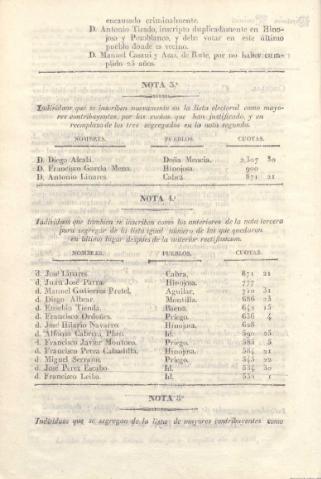 encausado criminalmente.
D. Antonio Tirado, inscripto duplicadamente en Hino-
josa y Pozoblanco, y debe votar en este último
pueblo donde es vecino.
D. Manuel Castri y Azas, de Rute, por no haber cum-
plido 25 años.
NOTA 3.ª
Individuos que se inscriben nuevamente en la lista electoral como mayo-
res contribuyentes, por las cuotas que han justificado, y en
reemplazo de los tres segregados en la nota segunda.
NOMBRES. PUEBLOS. CUOTAS.
D. Diego Alcalá. Doña Mencia. 2,307 30
D. Francisco Garcia Mora. Hinojosa. 900
D. Antonio Linares. Cabra. 871 21
NOTA 4.ª
Individuos que tambien se inscriben como los anteriores de la nota tercera
para segregar de la lista igual número de los que quedaron
en último lugar despues de la anterior rectificacion.
NOMBRES. PUEBLOS. CUOTAS.
d. José Linares. Cabra. 871 21
d. Juan José Parra. Hinojosa. 777
d. Manuel Gutierrez Pretel. Aguilar. 710 31
d. Diego Albear. Montilla. 686 23
d. Eusebio Tienda. Baena. 648 15
d. Francisco Ordoñez. Priego. 636 4
d. José Hilario Navarro. Hinojosa. 608
d. Alfonso Id. 590 25
d. Francisco Javier Montoro. Priego. 585 5
d. Francisco Perea Cabadilla. Hinojosa. 584 21
d. Miguel Serrano. Priego. 545 22
d. José Perez Escabo. Id. 534 30
d. Francisco Leiba. Id. 532 1
NOTA 5ª
Individuos que se segregan de la lista de mayores contribuyentes como